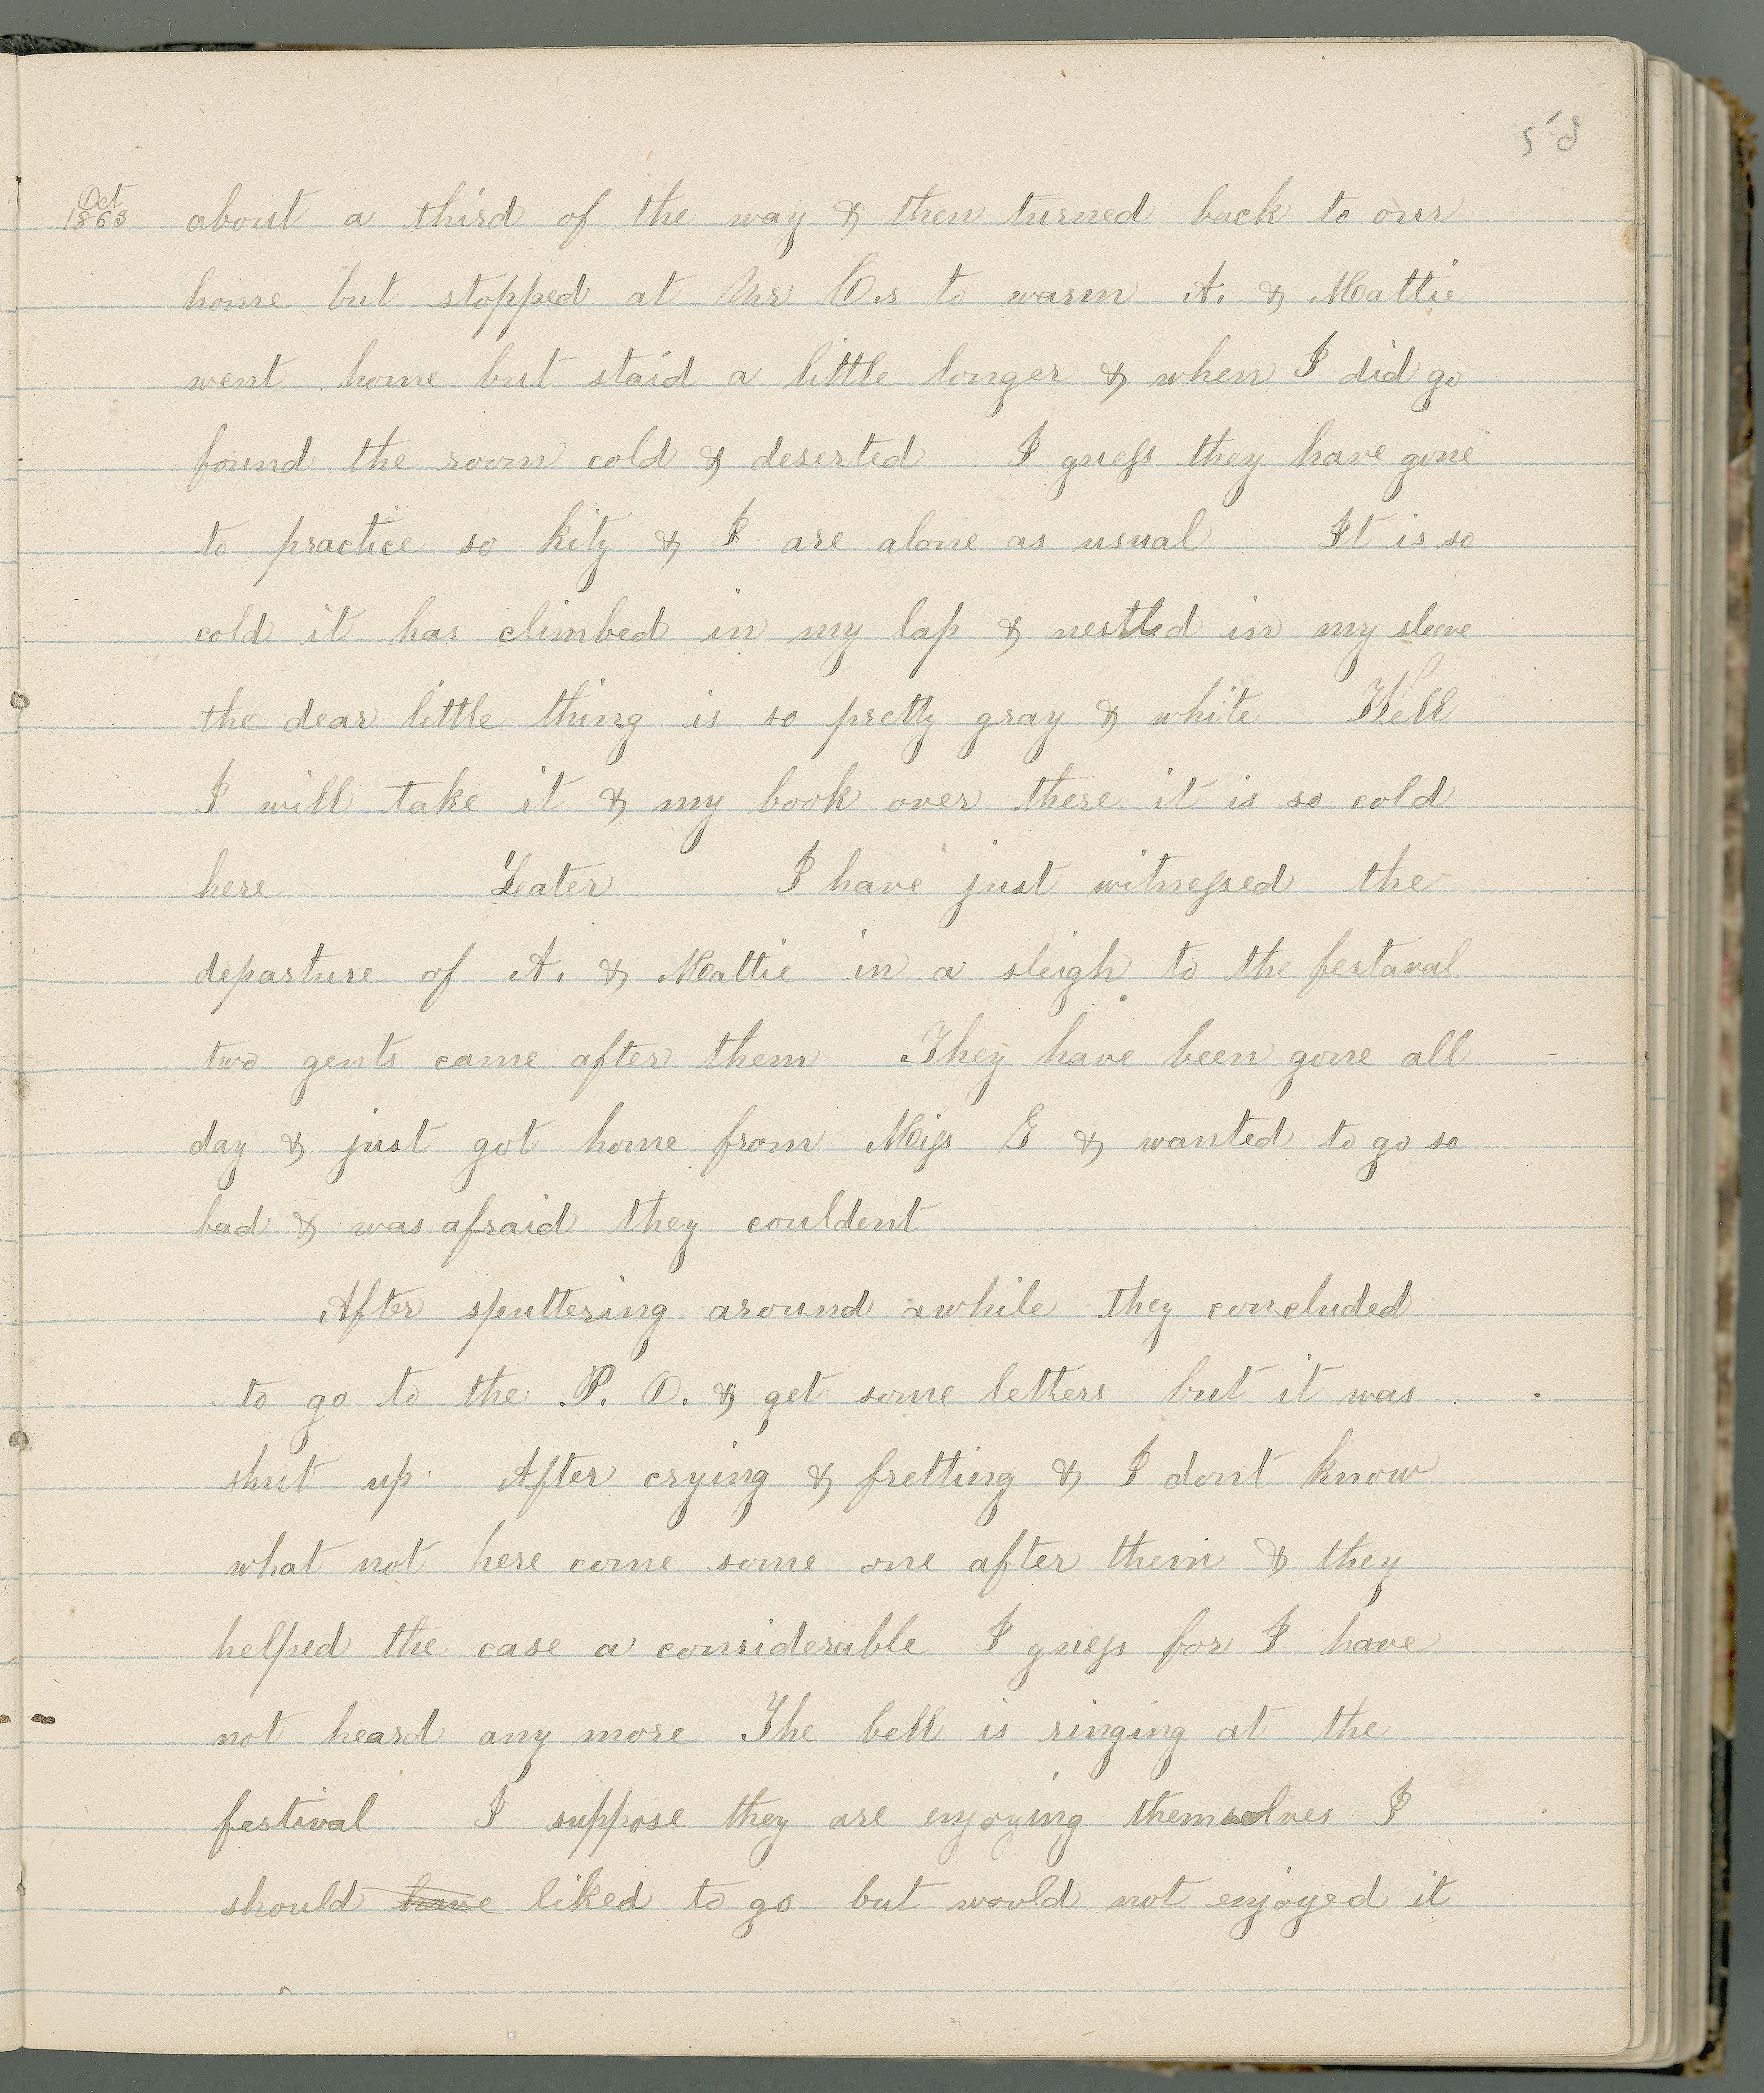 58
Oct
1863
about a third of the way & then turned back to our
home but stopped at Mr C.s to warm A. & Mattie
went home but staid a little longer & when I did go
found the room cold & deserted I guess they have gone
to practice so kity & I are alone as usual It is so
cold it has climbed in my lap & nestled in my sleeve
the dear little thing is so pretty gray & white Well
I will take it & my book over there it is so cold
here Later I have just witnessed the
departure of A. & Mattie in a sleigh to the festaval
two gents came after them They have been gone all
day & just got home from Miss G & wanted to go so
bad & was afraid they couldent
After sputtering around awhile they concluded
to go to the P. O. & get some letters but it was
shut up. After crying & fretting & I dont know
what not here come some one after them & they
helped the case a considerable I guess for I have
not heard any more The bell is ringing at the
festival I suppose they are enjoying themselves I
should have liked to go but would not enjoyed it